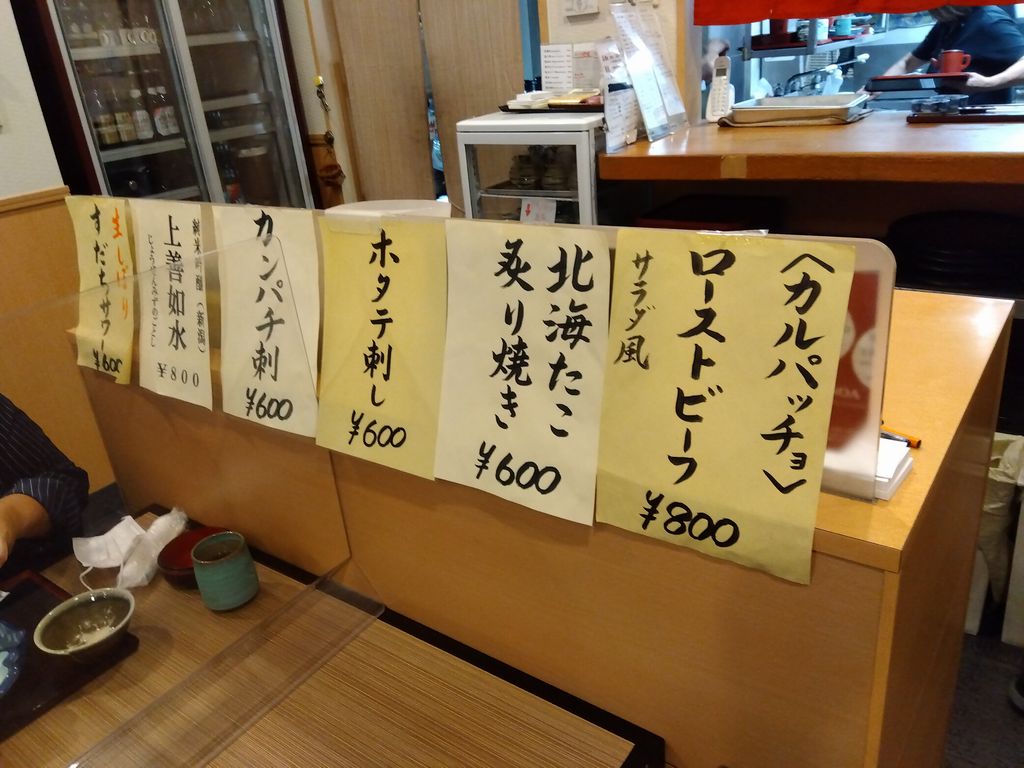 〈カルパッチョ〉
ローストビーフ
サラダ風
¥800
北海たこ
炙り焼き
¥600
ホタテ刺し
¥600
カンパチ刺
¥600
純米吟醸（新潟）
上善如水
じょうぜんみずのごとし
¥800
生しぼり
すだちサワー
¥600